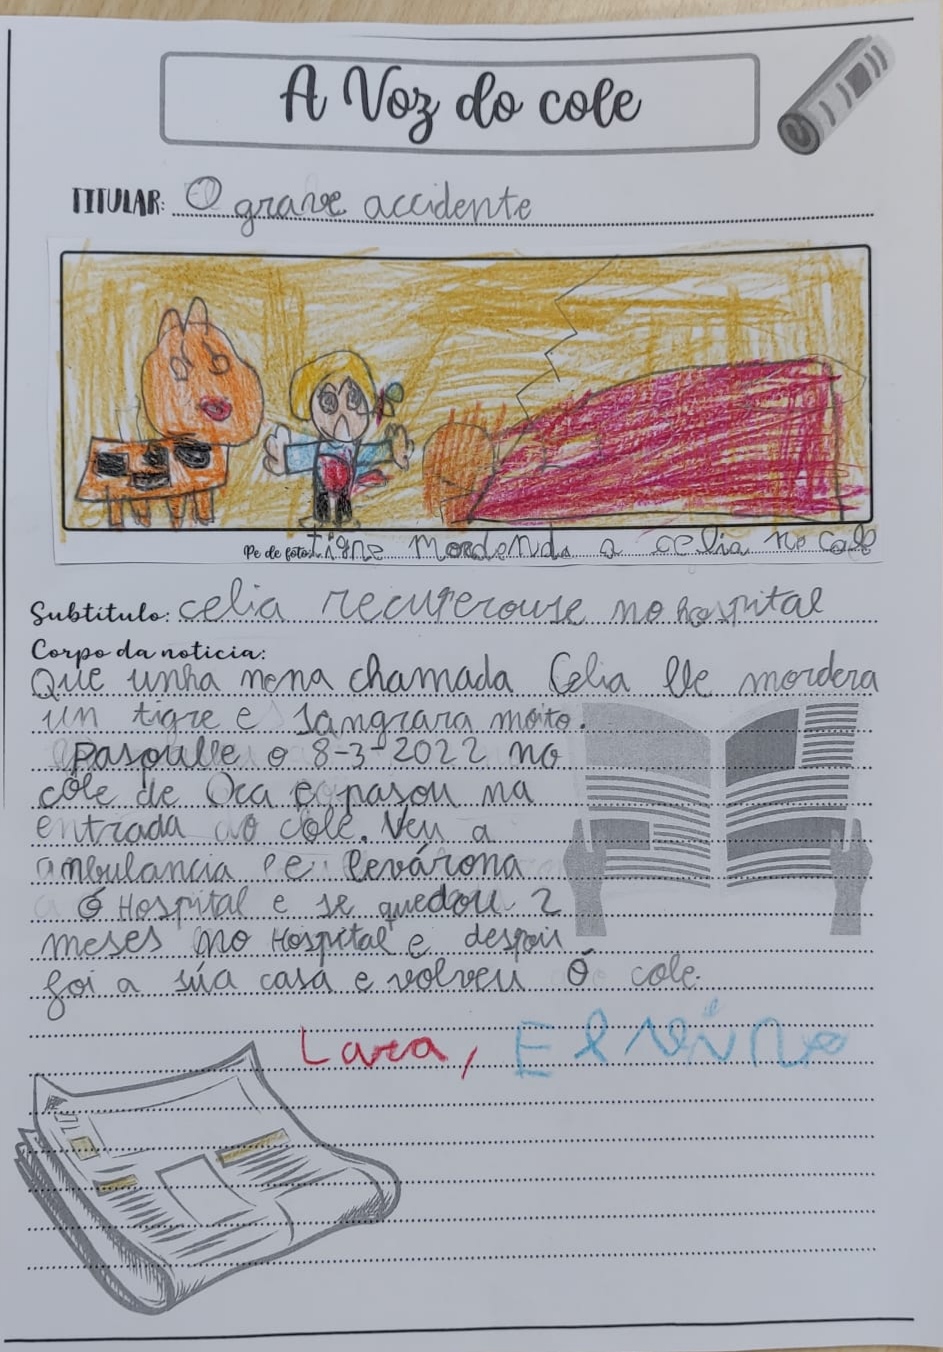 A Voz do cole
TITULAR: O grave accidente
Pe de foto: tigre mordendo a celia no cole
Subtítulo: celia recuperouse no hospital
Corpo da noticia:
Que unha nena chamada Celia lle mordera
un tigre e sangrara moito.
Pasoulle o 8-3-2022 no
cole de Oca e pasou na
entrada do cole. Veu a
ambulancia e levárona
ó Hospital e se quedou 2
meses no Hospital e despois
foi a súa casa e volveu ó cole.
Lara,